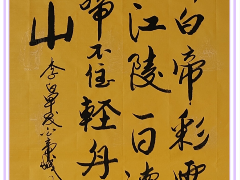 白帝彩雲
江陵一日還
啼不住輕舟
山
李白早發白帝城